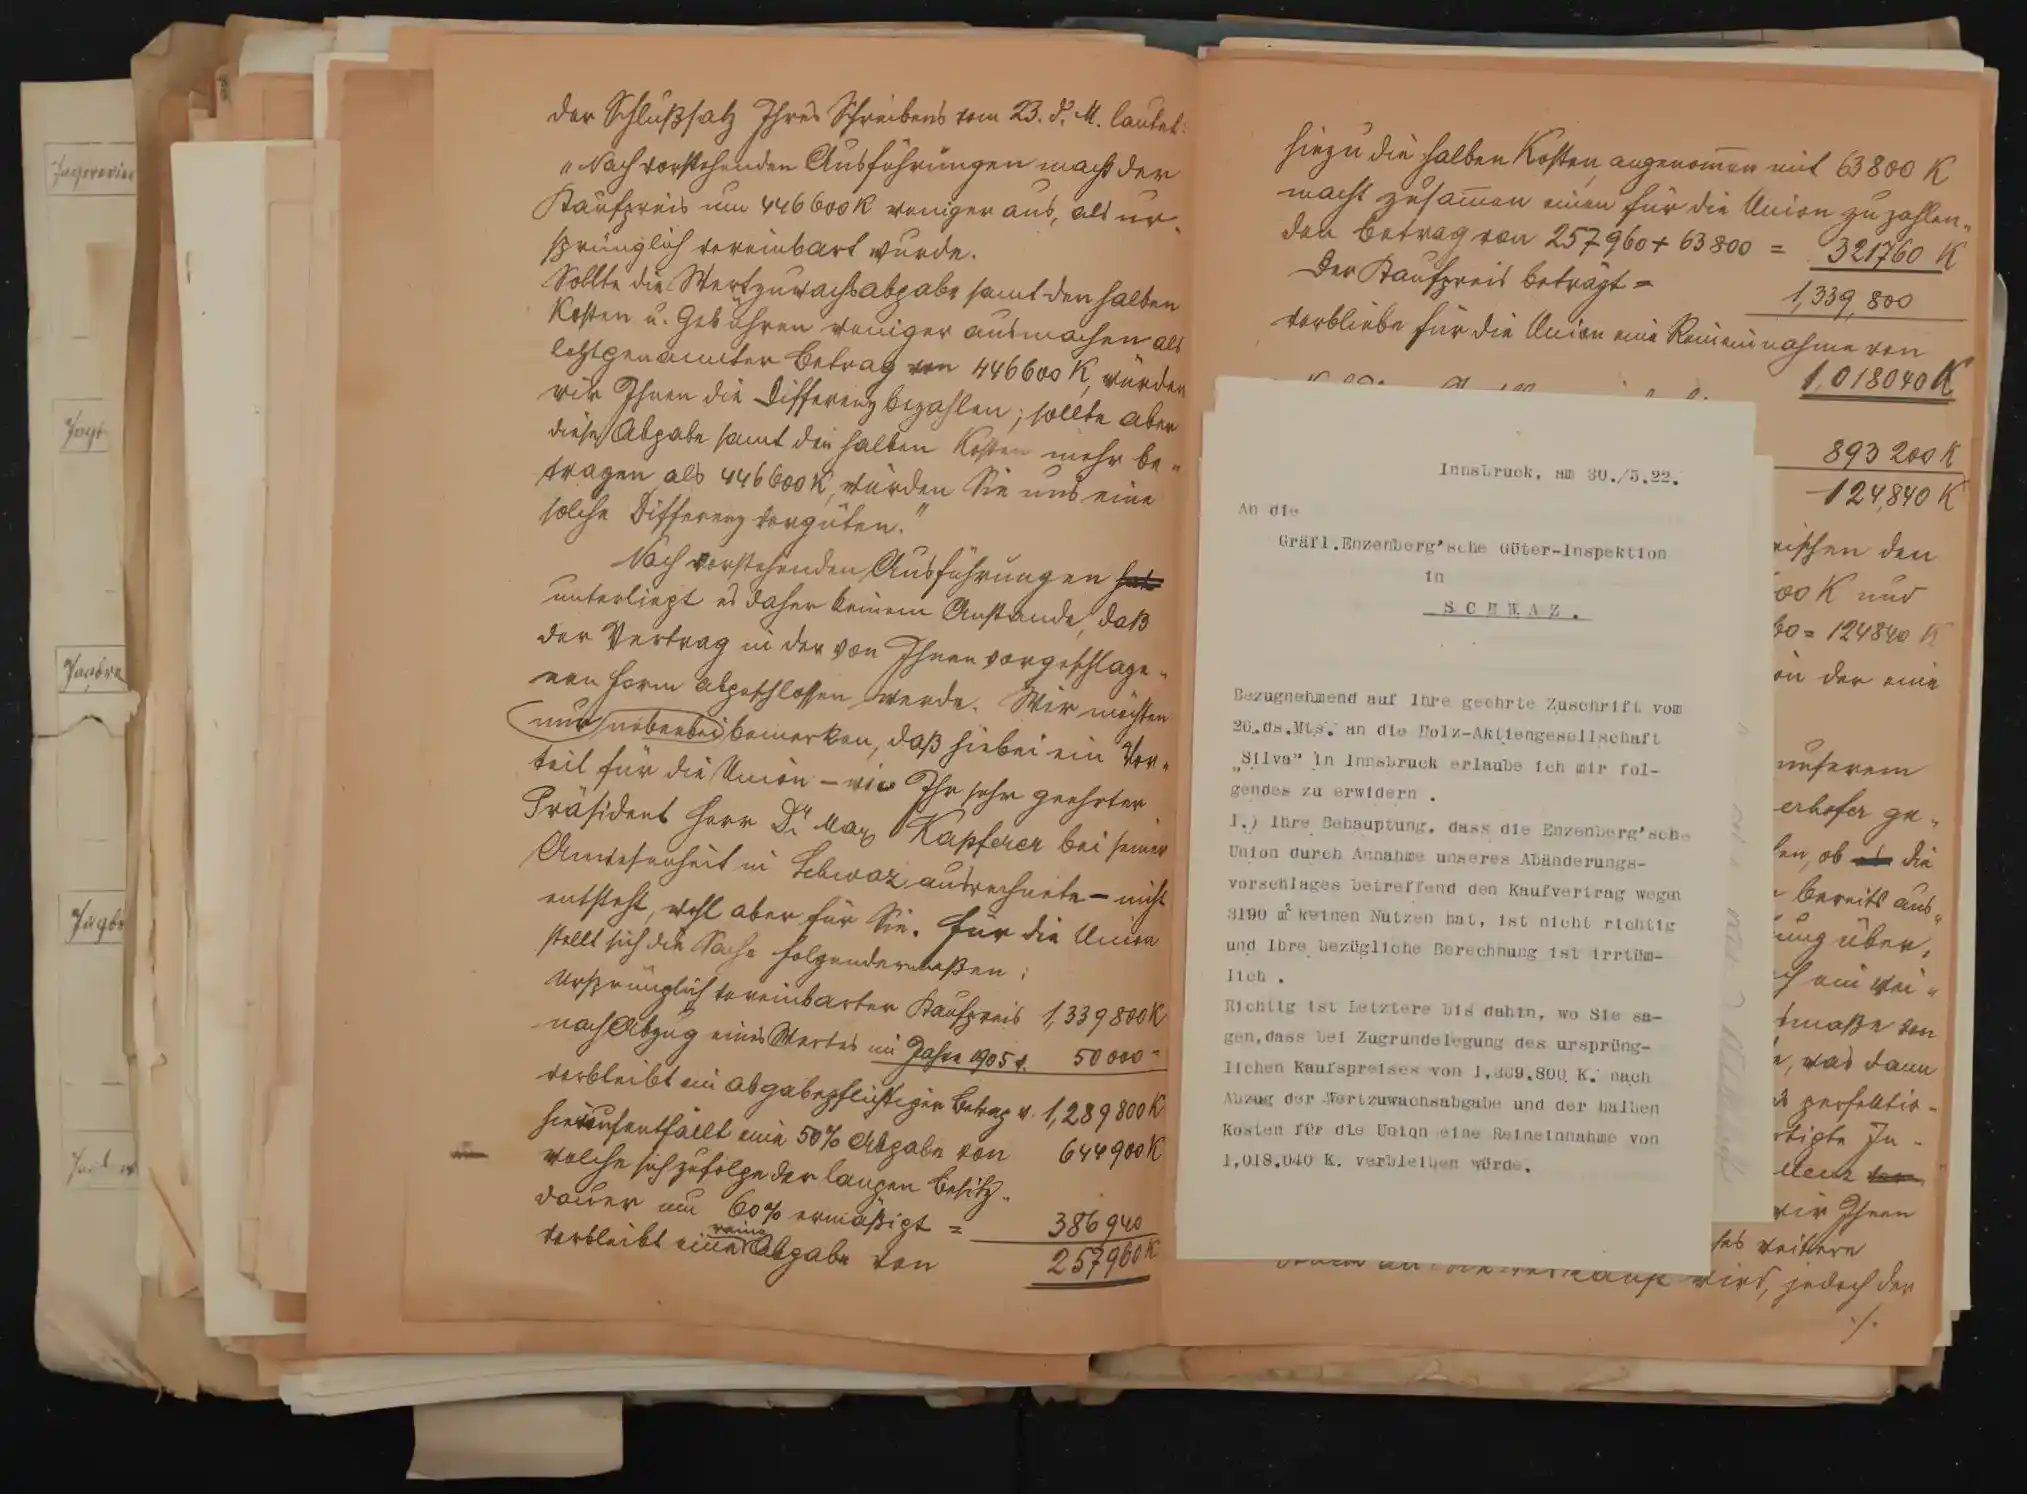 Jagdrevier
Jagd
der Schlußsatz Ihres Schreibens vom 23. d. M. lautet:
„Nach vorstehenden Ausführungen macht der
Kaufpreis um 446600K weniger aus, als ur-
sprünglich vereinbart wurde.
Sollte die Wertzuwachsabgabe samt den halben
Kosten u. Gebühren weniger ausmachen als
letztgenannter Betrag von 446600 K, würden
wir Ihnen die Differenz bezahlen; sollte aber
diese Abgabe samt den halben Kosten mehr be-
tragen als 446600K, würden Sie uns eine
solche Differenz vergüten."
Nach vorstehenden Ausführungen hat
unterliegt es daher keinem Anstande, daß
der Vertrag in der von Ihnen vorgeschlage-
nen Form abgeschlossen werde. Wir möchten
nur nebenbei bemerken, daß hiebei ein Vor-
teil für die Union – wie Ihr sehr geehrter
Präsident Herr Dr. Max Kapferer bei seiner
Anwesenheit in Schwaz ausrechnete – nicht
entsteht, wohl aber für Sie. Für die Union
stellt sich die Sache folgendermaßen:
Ursprünglich vereinbarter Kaufpreis 1,339800K
nach Abzug eines Wertes im Jahre 1905 v. 50000 "
verbleibt ein abgabepflichtiger Betrag v. 1,289800K
hierauf entfällt eine 50% Abgabe von 644900K
welche sich zufolge der langen Besitz-
dauer um 60% ermäßigt = 386940
verbleibt eine reine Abgabe von 257960K
hiezu die halben Kosten angenommen mit 63800 K
macht zusammen einen für die Union zu zahlen-
den Betrag von 257960 + 63800 = 321760 K
Der Kaufpreis beträgt = 1,339,800
verbliebe für die Union eine Reineinnahme von
1,018040 K
893200 K
124,840 K
zwischen den
00 K und
60 = 124840 K
der eine
unserem
erhofer ge-
ob die
bereits aus-
ung über,
ein wei-
maße von
was dann
perfektio-
In-
wir Ihnen
weitere
wird, jedoch der
./.
Innsbruck, am 30./5.22.
An die
Gräfl.Enzenberg'sche Güter-Inspektion
in
SCHWAZ.
Bezugnehmend auf Ihre geehrte Zuschrift vom
26.ds.Mts. an die Holz-Aktiengesellschaft
„Silva" in Innsbruck erlaube ich mir fol-
gendes zu erwidern .
1.) Ihre Behauptung, dass die Enzenberg'sche
Union durch Annahme unseres Abänderungs-
vorschlages betreffend den Kaufvertrag wegen
3190 m² keinen Nutzen hat, ist nicht richtig
und Ihre bezügliche Berechnung ist irrtüm-
lich .
Richtig ist Letztere bis dahin, wo Sie sa-
gen,dass bei Zugrundelegung des ursprüng-
lichen Kaufspreises von 1,339.800 K. nach
Abzug der Wertzuwachsabgabe und der halben
Kosten für die Union eine Reineinnahme von
1,018.040 K. verbleiben würde.